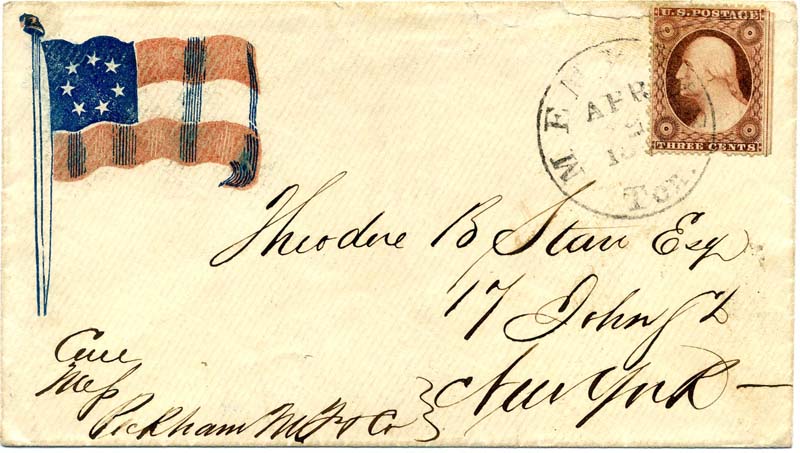 U.S. POSTAGE
THREE CENTS
MEMP
APR
Ten.
Theodore B Starr Esq
17 John St
New York
Care
Mess
Peckham
Co